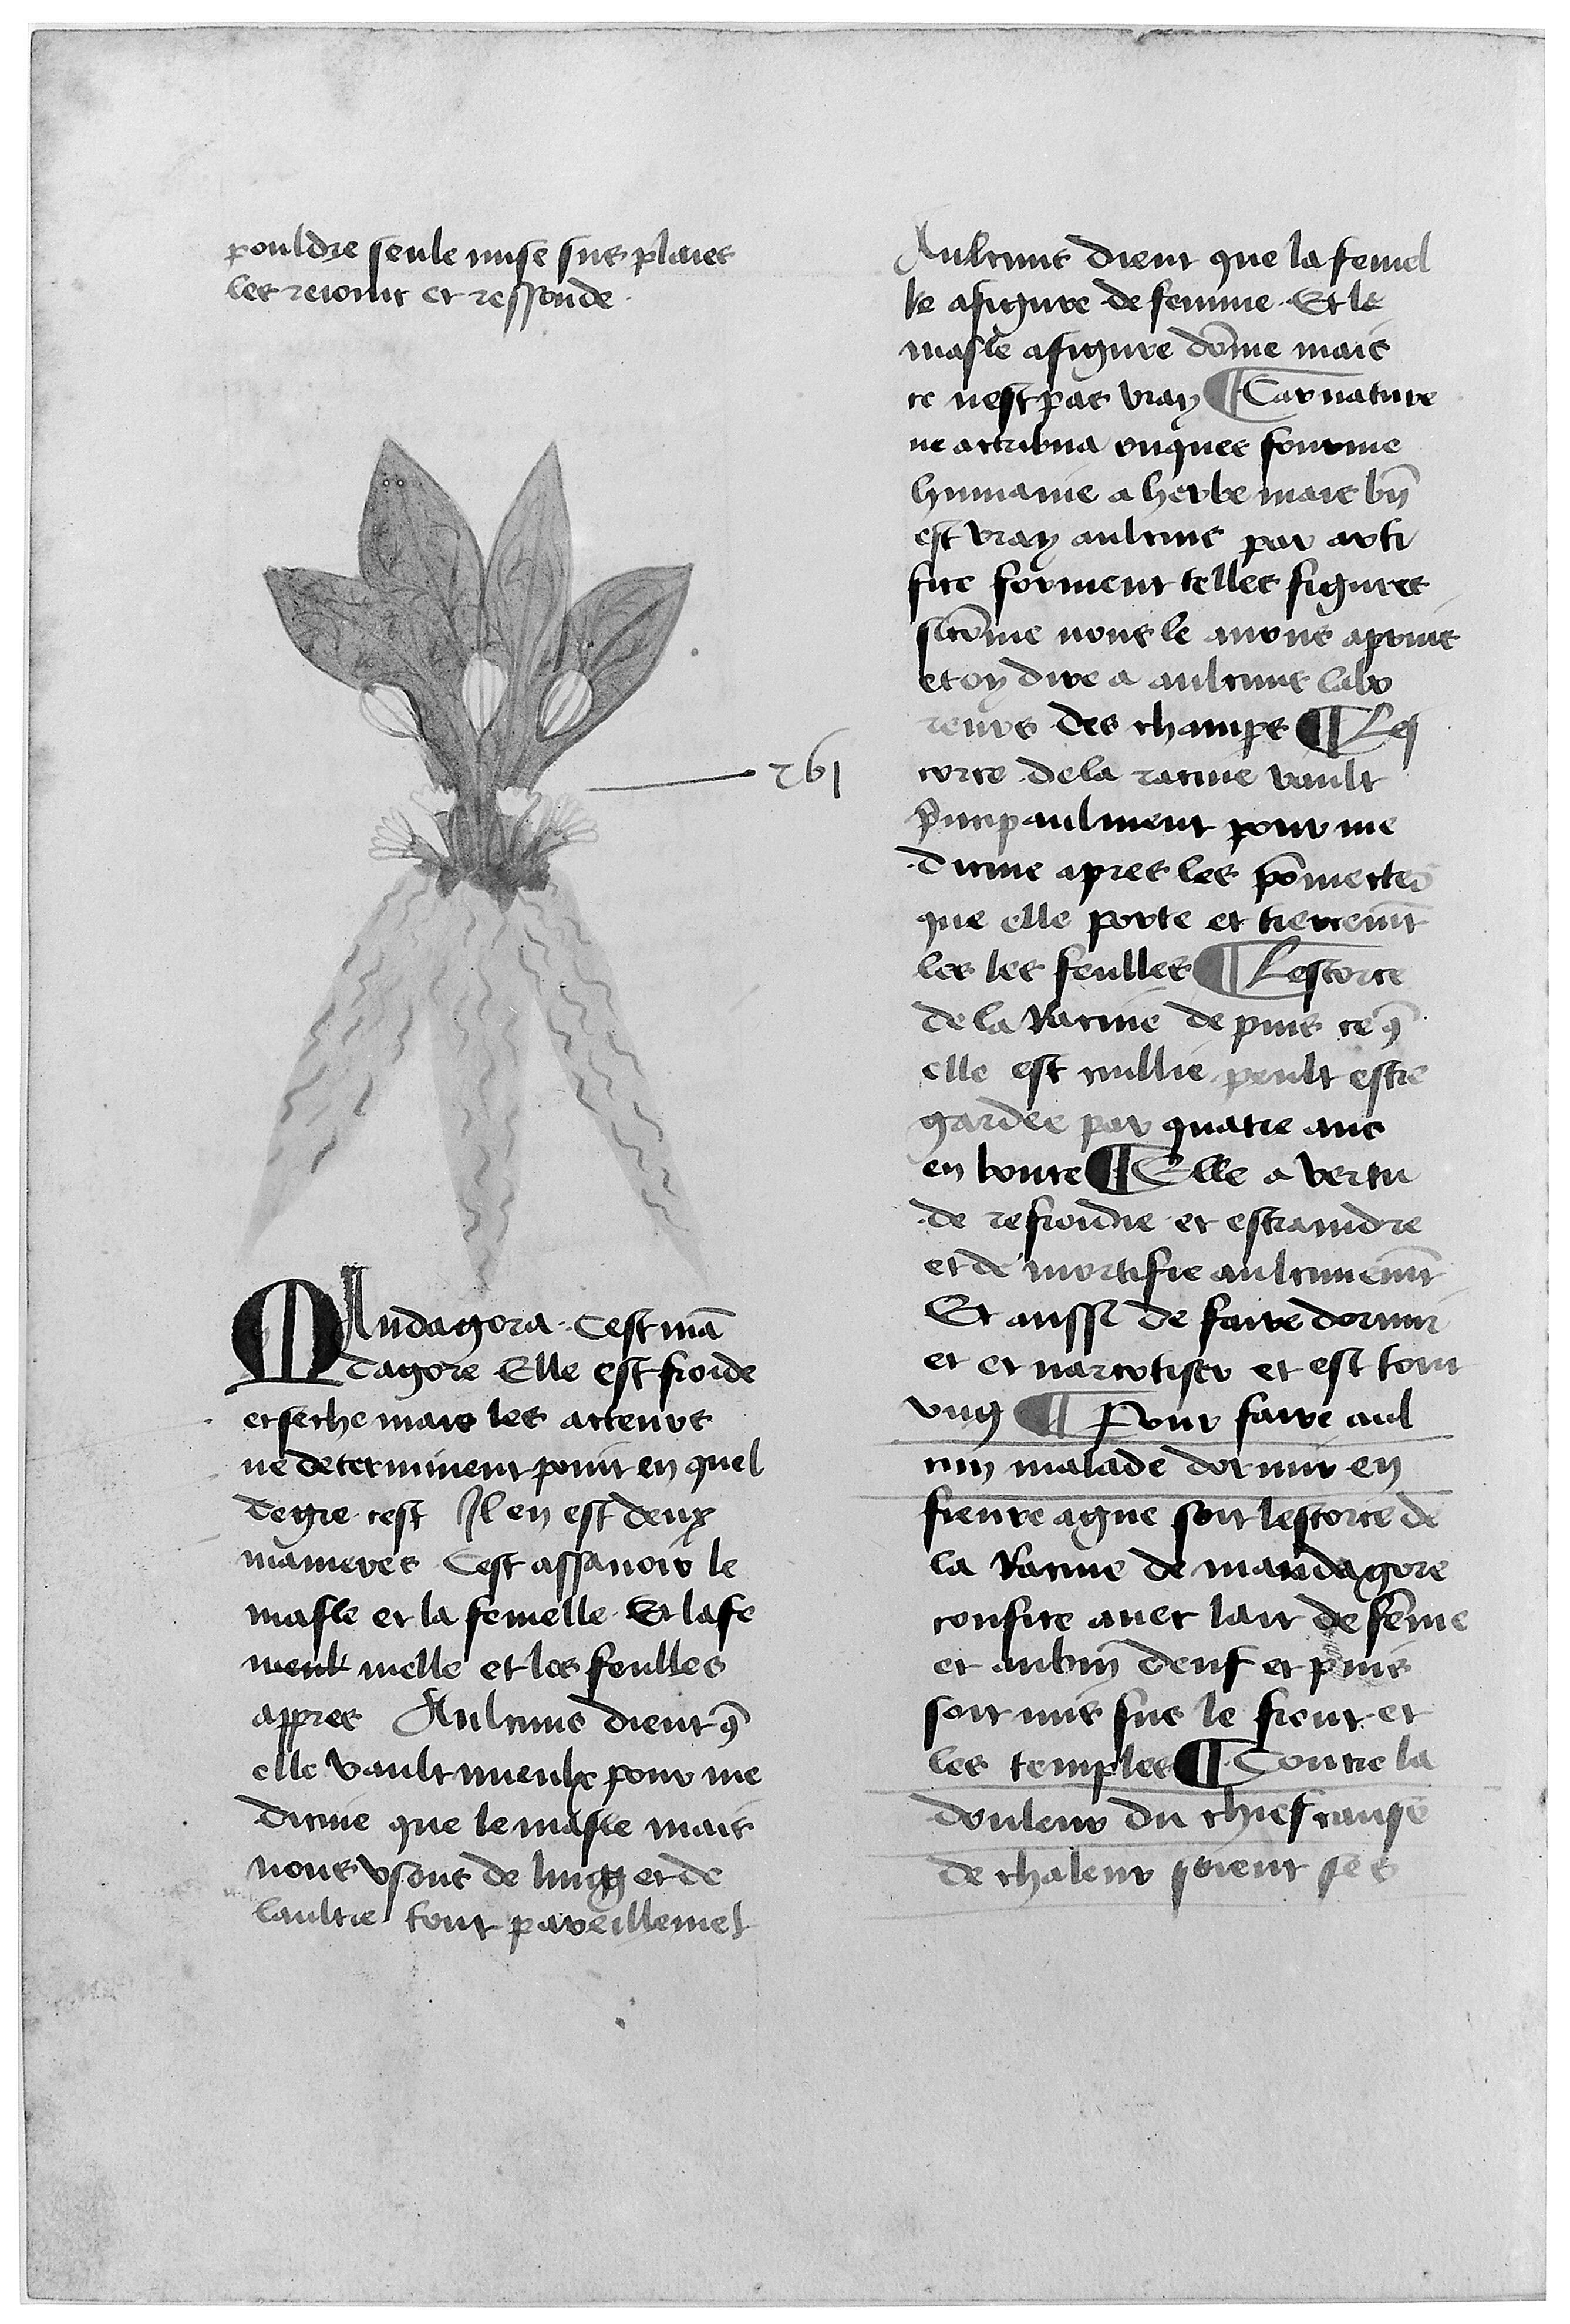 pouldre seule mise sus plaies
les reioint et ressoude.
261
MAndagora. Cest mā
dagore Elle est froide
et seche mais les acteurs
ne determinent point en quel
degre cest Il en est deux
manieres Cest assauoir le
masle et la femelle. Et la fe
melle et les feulles
appres Aulcuns dient qꝫ
elle vault mieulx pour me
dicine que le masle mais
nous vsons de lung et de
laultre tout pareillemet
Aulcuns dient que la femel
le a figure de femme. Et le
masle a figure dōme mais
ce nest pas vray ¶ Car nature
ne attribua onques fourme
humaine a herbe mais bn̄
est vray aulcuns par arti
fice forment telles figures
sicōme nous le auons aprins
et oy dire a aulcuns labo
reurs des champs ¶ Les
corce de la racine vault
p̄ncipaulment pour me
dicine apres les pōmectes
que elle porte et tiercemt̄
les les feulles ¶ Lescorce
de la Racine depuis ce qꝫ
elle est cuillie peult estre
gardee par quatre ans
en bonte ¶ Elle a vertu
de refroidire et estraindre
et de mortifie aulcunemt̄
Et aussi de faire dormir
et et narcotiser et est tout
vng ¶ Pour faire aul
cun malade dormir en
fieure ague soit lescorce de
la Racine de mandagore
confite auec lait de fēme
et aubin deuf et puis
soit mis sus le front et
les temples ¶ Contre la
douleur du chief causē
de chaleur soient ses